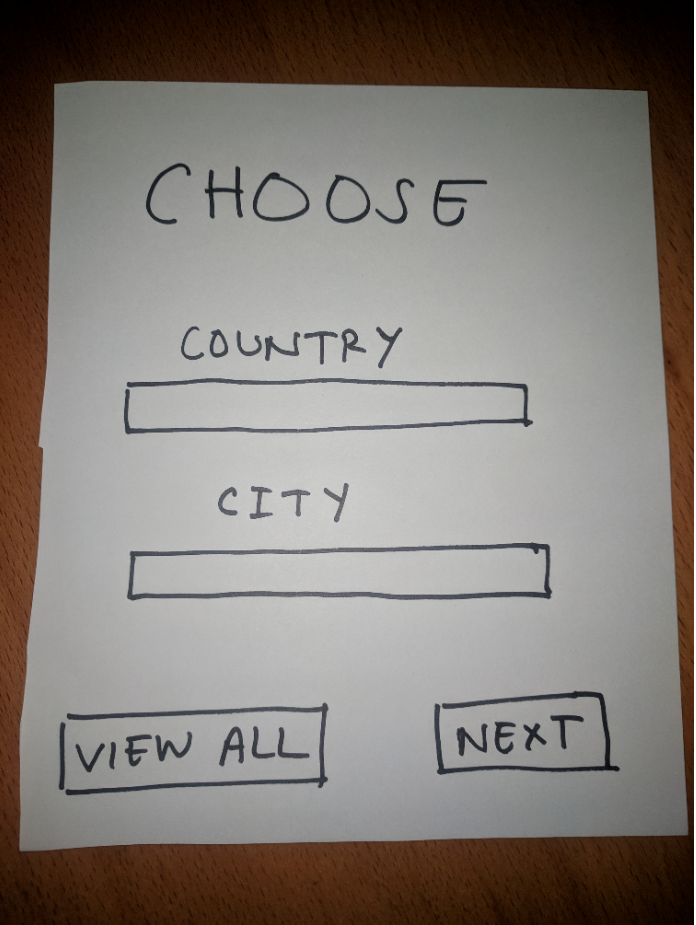 CHOOSE
COUNTRY
CITY
VIEW ALL
NEXT